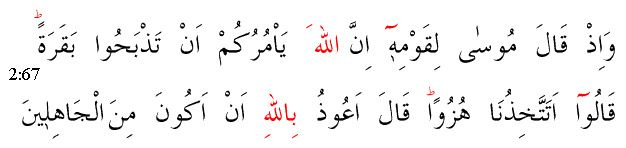 وَاِذْ قَالَ مُوسٰى لِقَوْمِهٖٓ اِنَّ اللّٰهَ يَاْمُرُكُمْ اَنْ تَذْبَحُوا بَقَرَةًۜ
2:67
قَالُوٓا اَتَتَّخِذُنَا هُزُوًاۜ قَالَ اَعُوذُ بِاللّٰهِ اَنْ اَكُونَ مِنَ الْجَاهِلٖينَ